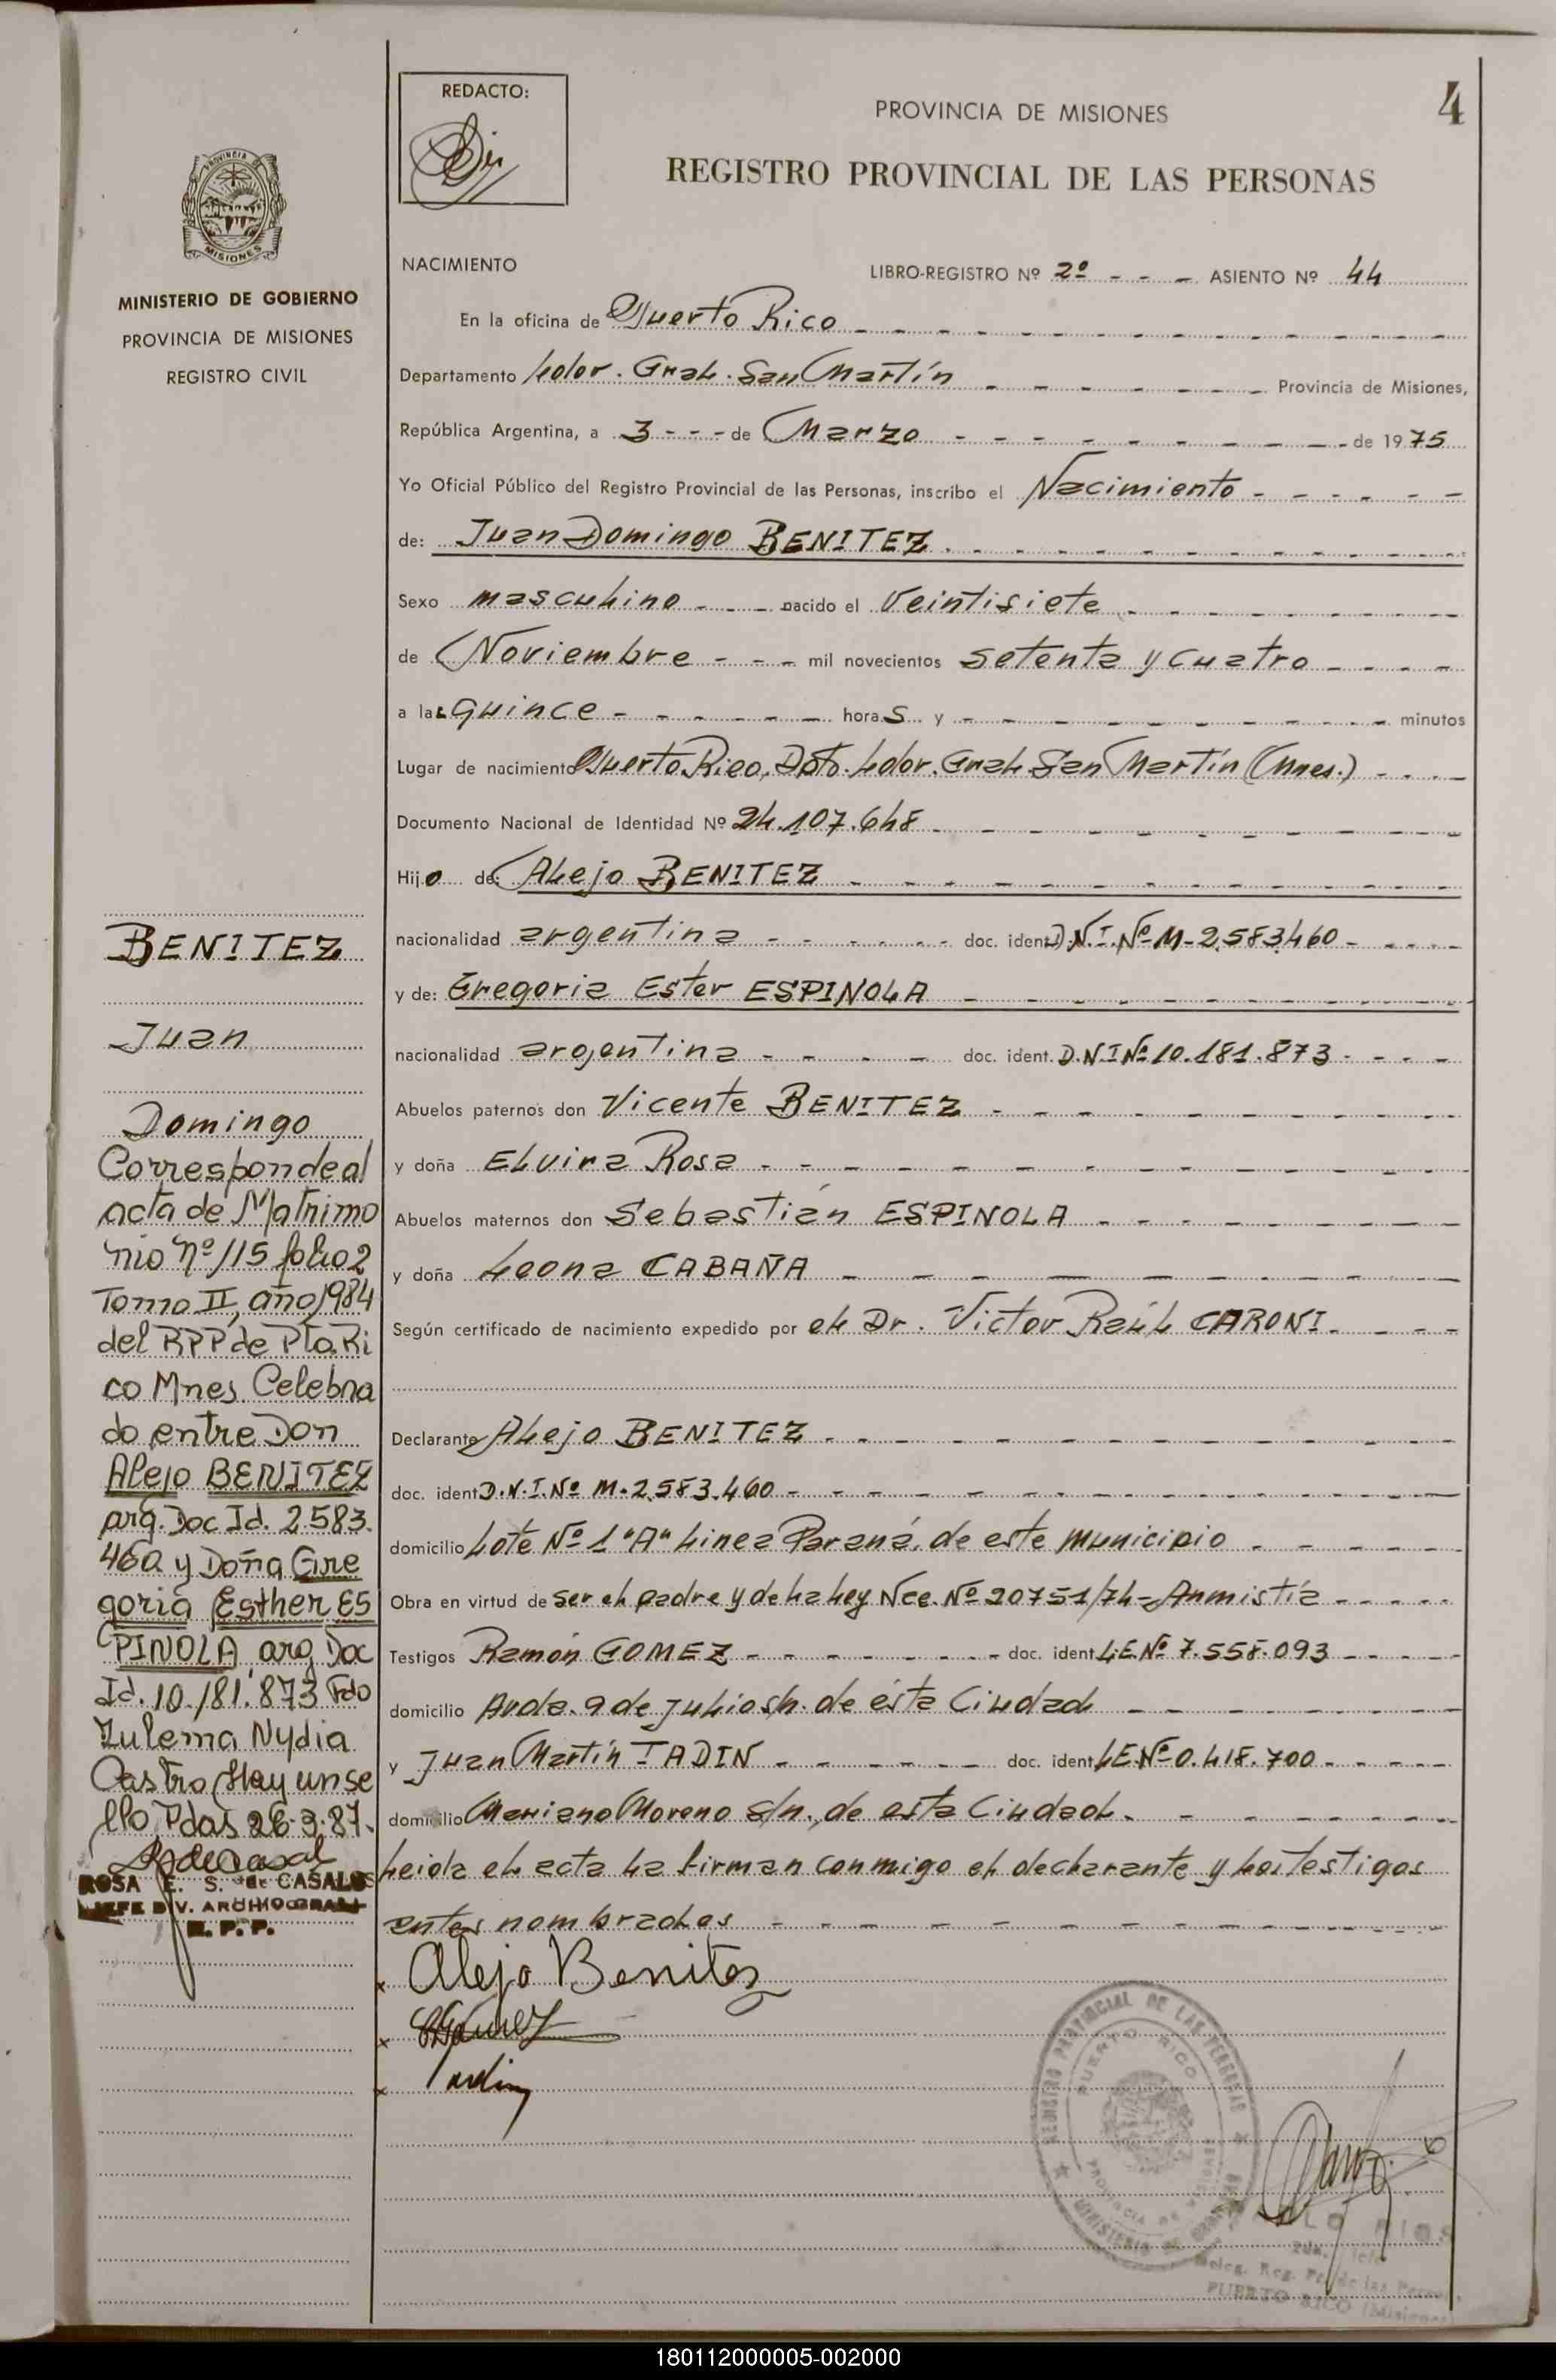 REDACTO:
PROVINCIA DE MISIONES
4
REGISTRO PROVINCIAL DE LAS PERSONAS
PROVINCIA DE
MISIONES
MINISTERIO DE GOBIERNO
PROVINCIA DE MISIONES
REGISTRO CIVIL
NACIMIENTO
LIBRO-REGISTRO Nº 2º - - - ASIENTO Nº 44
En la oficina de Puerto Rico
Departamento Ldor. Gral. San Martín Provincia de Misiones,
República Argentina, a 3 - - - de Marzo de 1975
Yo Oficial Público del Registro Provincial de las Personas, inscribo el Nacimiento
de: Juan Domingo BENITEZ
Sexo masculino nacido el Veintisiete
de Noviembre - - - mil novecientos setenta y cuatro
a las quince horas y minutos
Lugar de nacimiento Puerto Rico, Dpto. Ldor. Gral. San Martín (Mnes.)
Documento Nacional de Identidad Nº 24.107.648
Hijo de: Alejo BENITEZ
nacionalidad argentina doc. ident. D.N.I. Nº M-2.583.460
y de: Gregoria Ester ESPINOLA
nacionalidad argentina doc. ident. D.N.I Nº 10.181.873
Abuelos paternos don Vicente BENITEZ
y doña Elvira Rosa
Abuelos maternos don Sebastián ESPINOLA
y doña Leona CABAÑA
Según certificado de nacimiento expedido por el Dr. Victor Raúl CARONI
Declarante Alejo BENITEZ
doc. ident D.N.I. Nº M-2.583.460
domicilio Lote Nº 1 "A" Linea Paraná, de este municipio
Obra en virtud de ser el padre y de la ley Nce. Nº 20751/74 - Anmistía
Testigos Ramón GOMEZ doc. ident L.E. Nº 7.558.093
domicilio Avda. 9 de Julio s/n. de ésta Ciudad
y Juan Martín TADIN doc. ident L.E. Nº 0.418.700
domicilio Mariano Moreno s/n., de esta Ciudad.
Leida el acta la firman conmigo el declarante y los testigos
antes nombrados
x Alejo Benitez
x
x
BENITEZ
Juan
Domingo
Corresponde al
acta de Matrimo
nio nº 115 folio 2
Tomo II, año 1984
del RPP de Pto. Ri
co Mnes. Celebra
do entre Don
Alejo BENITEZ
arg. Doc Id. 2.583.
460 y Doña Gre
goria Esther ES
PINOLA arg. Doc
Id. 10.181.873 Fdo
Zulema Nydia
Castro. Hay un se
llo. Pdas 26-3-87.
ROSA E. S. de CASALS
JEFE DIV. ARCHIVO GRAL
R. P. P.
REGISTRO PROVINCIAL DE LAS PERSONAS
PUERTO RICO
PROVINCIA DE MISIONES
MINISTERIO DE
RIOS
Deleg. Reg. de las
PUERTO RICO (Misiones)
180112000005-002000